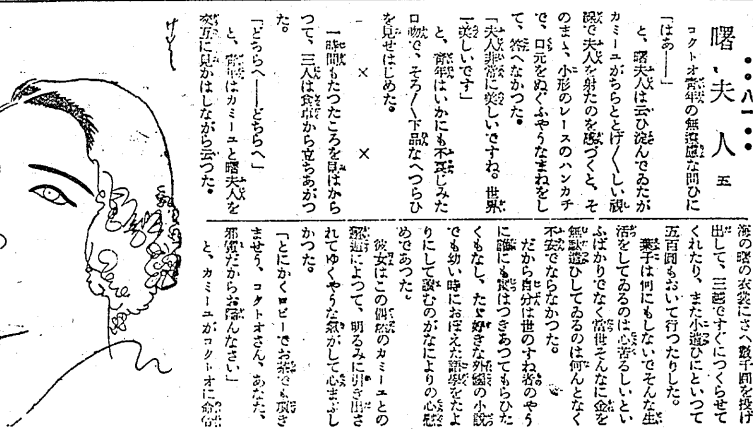 ・・八一・・
曙夫人
五
コクトオ青年の無遠慮な問ひに
「はあ――」
と、曙夫人は云ひ淀んでゐたが
カミーユがちらとけ〴〵しい視
線で夫人を射たのを感づくと、そ
のまゝ、小形のレースのハンカチ
で、口元をぬぐふやうなまねをし
て、答へなかつた。
「夫人非常に美しいですね。世界
一美しいです」
と、青年はいかにも不良じみた
口吻で、そろ〳〵下品なへつらひ
を見せはじめた。
× ×
一時間もたつたころを見はから
つて、三人は食卓から立ちあがつ
た。
「どちらへ――どちらへ」
と、青年はカミーユと曙夫人を
交互に見かはしながら云つた。
海の曙の衣裳にさへ数千円を投げ
出して、三越ですぐにつくらせて
くれたり、また小遣ひにといつて
五百円もおいて行つたりした。
葉子は何にもしないでそんな生
活をしてゐるのは心苦るしいとい
ふばかりでなく当世そんなに金を
無駄遣ひしてゐるのは何んとなく
不安でならなかつた。
だから自分は世のすね者のやう
に誰にも実はつきあつてもらひた
くもなし、たゞ好きな外国の小説
でも幼い時におぼえた語学をたよ
りにして読むのがなによりの心慰
めであつた。
彼女はこの偶然のカミーユとの
邂逅によつて、明るみに引き出さ
れてゆくやうな気がして心まぶし
かつた。
「とにかくロビーでお茶でも頂き
ませう。コクトオさん、あなた、
邪魔だからお帰んなさい」
と、カミーユがコクトオに命令